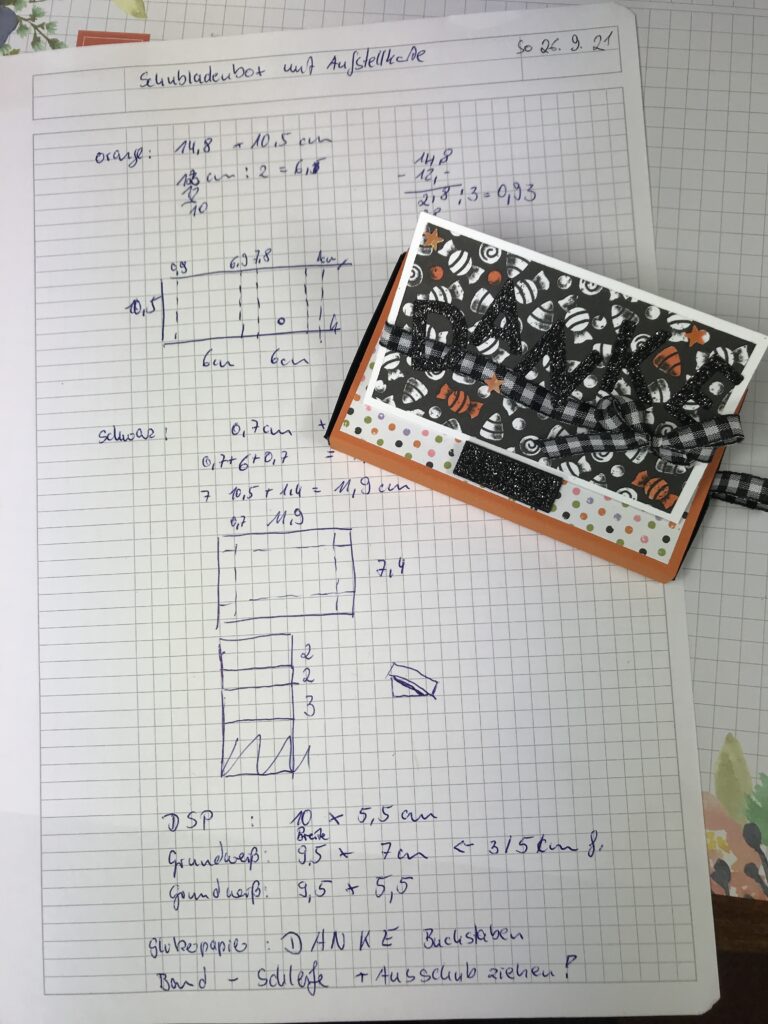 Schubladenbox mit Aufstellkarte
So 26. 9. 21
orange: 14,8 × 10,5 cm
cm : 2 = 6,
10
14,8
- 12,-
2,8 : 3 = 0,93
0,9 6,9 7,8 1cm
10,5
6cm 6cm
schwarz: 0,7cm +
0,7+6+0,7 =
7 10,5 + 1,4 = 11,9 cm
0,7 11,9
7,4
2
2
3
DANKE
DSP : 10 × 5,5 cm
Breite
Grundweiß: 9,5 × 7cm ←
Grundweiß: 9,5 × 5,5
: DANKE Buchstaben
Band - Schleife + Ausschub ziehen!